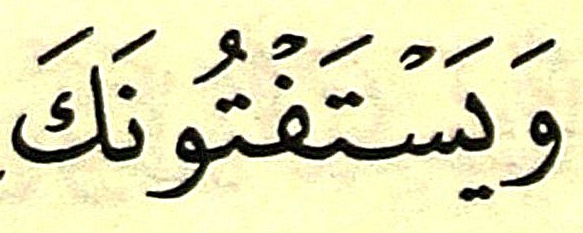 وَيَسْتَفْتُونَكَ